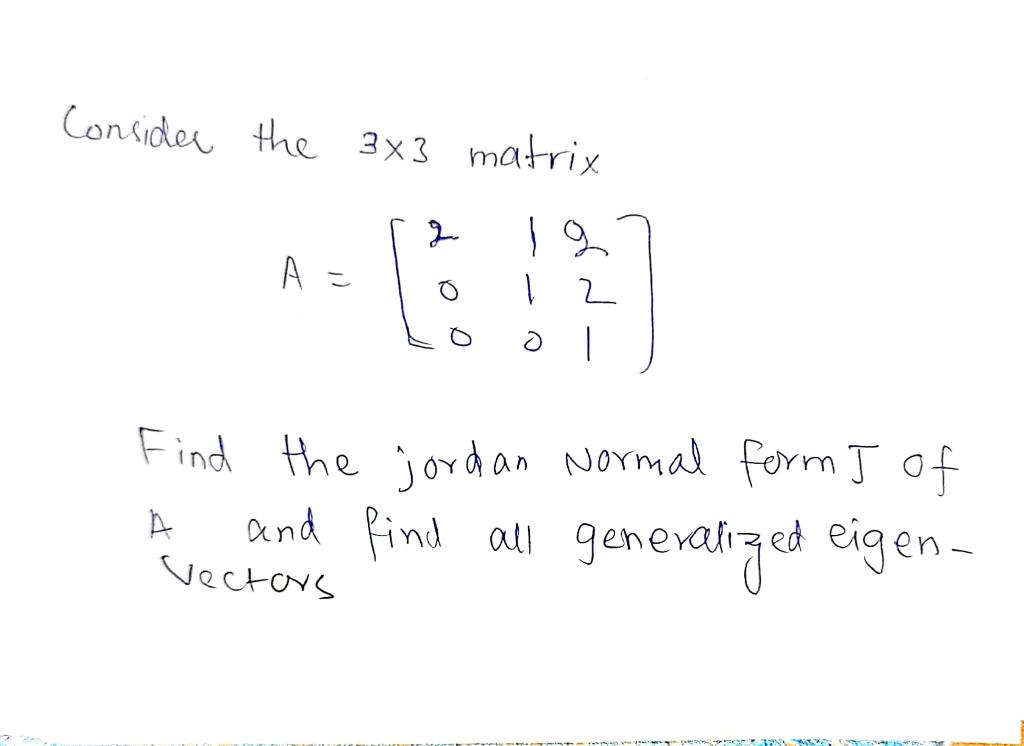 Consider the 3x3 matrix
A = [ 2 1 2
0 1 2
0 0 1 ]
Find the jordan Normal form J of
A and find all generalized eigen-
vectors